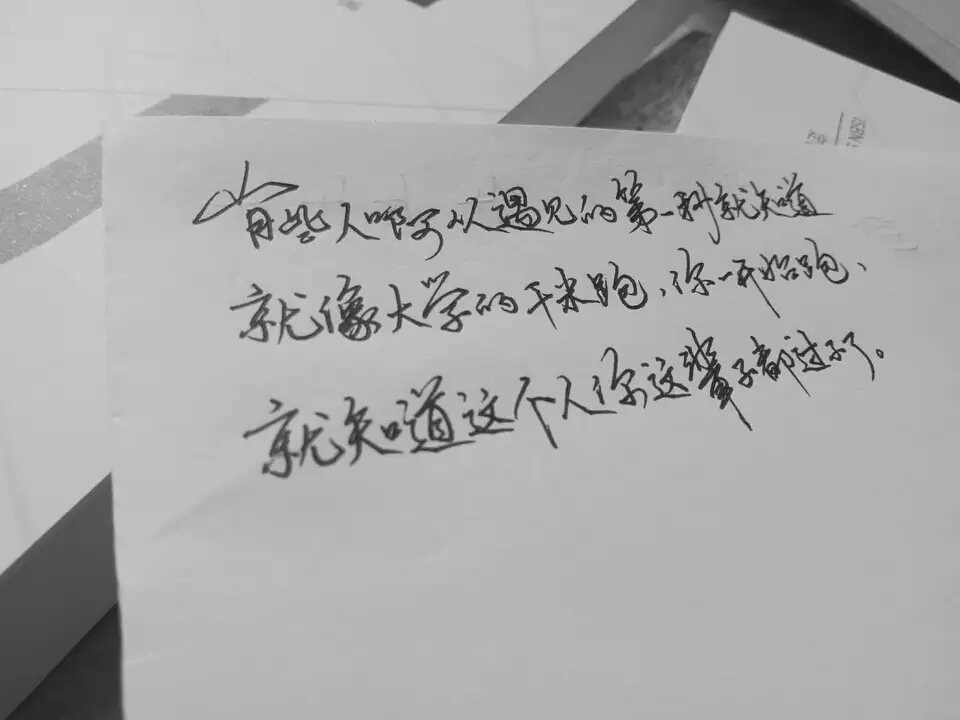 有些人啊可以遇见的第一秒就知道
就像大学的千米跑、你一开始跑、
就知道这个人你这辈子都过不了。
ISBN